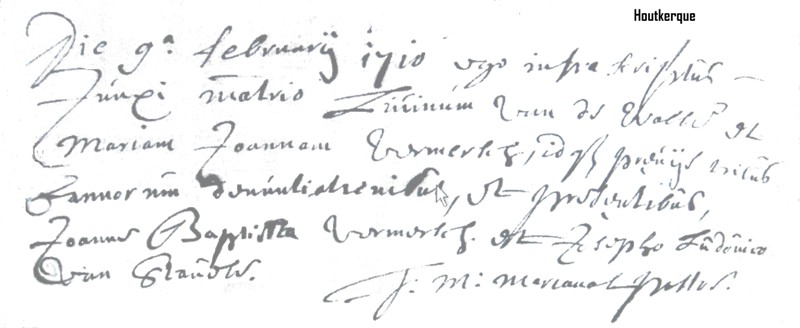 Houtkerque
Die 9ª februarij 1710 ego infra scriptus
Junxi matrio Livinum Van de Walle et
Mariam Joannam Vermersch, idq; prævijs tribus
bannorum denuntiationibus, et præsentibus,
Joanne Baptista Vermersch. et Josepho Ludovico
Van
F: M: